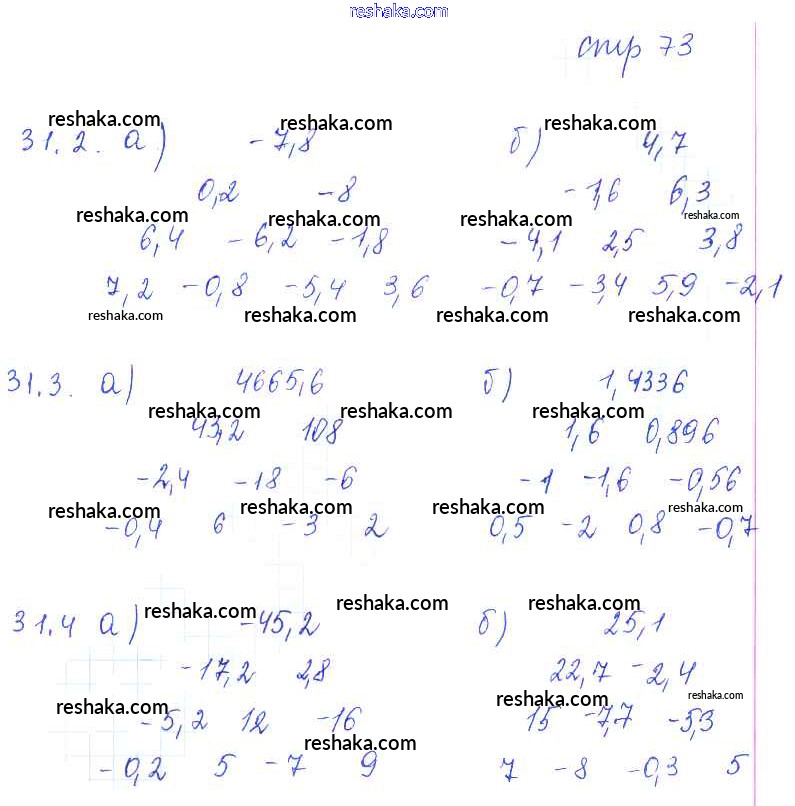 reshaka.com
стр 73
reshaka.com reshaka.com reshaka.com
31.2. а) -7,8 б) 4,7
0,2 -8 -1,6 6,3
reshaka.com reshaka.com reshaka.com reshaka.com
6,4 -6,2 -1,8 -4,1 2,5 3,8
7,2 -0,8 -5,4 3,6 -0,7 -3,4 5,9 -2,1
reshaka.com reshaka.com reshaka.com reshaka.com
31.3. а) 4665,6 б) 1,4336
reshaka.com reshaka.com reshaka.com
43,2 108 1,6 0,896
-2,4 -18 -6 -1 -1,6 -0,56
reshaka.com reshaka.com reshaka.com reshaka.com
-0,4 6 -3 2 0,5 -2 0,8 -0,7
reshaka.com reshaka.com reshaka.com
31.4 а) -45,2 б) 25,1
-17,2 2,8 22,7 -2,4
reshaka.com reshaka.com reshaka.com
-5,2 12 -16 15 -7,7 -5,3
reshaka.com
-0,2 5 -7 9 7 -8 -0,3 5